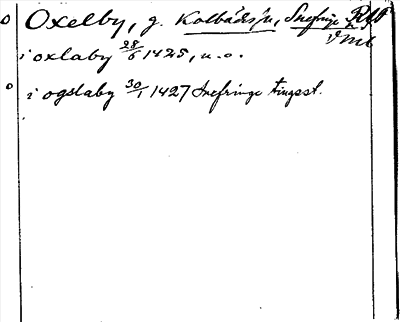 Oxelby, g. Kolbäcks sn, Snefringe
Vml
i oxlaby 28/6 1425, u. o.
i ogslaby 30/1 1427 Snefringe tingsst.